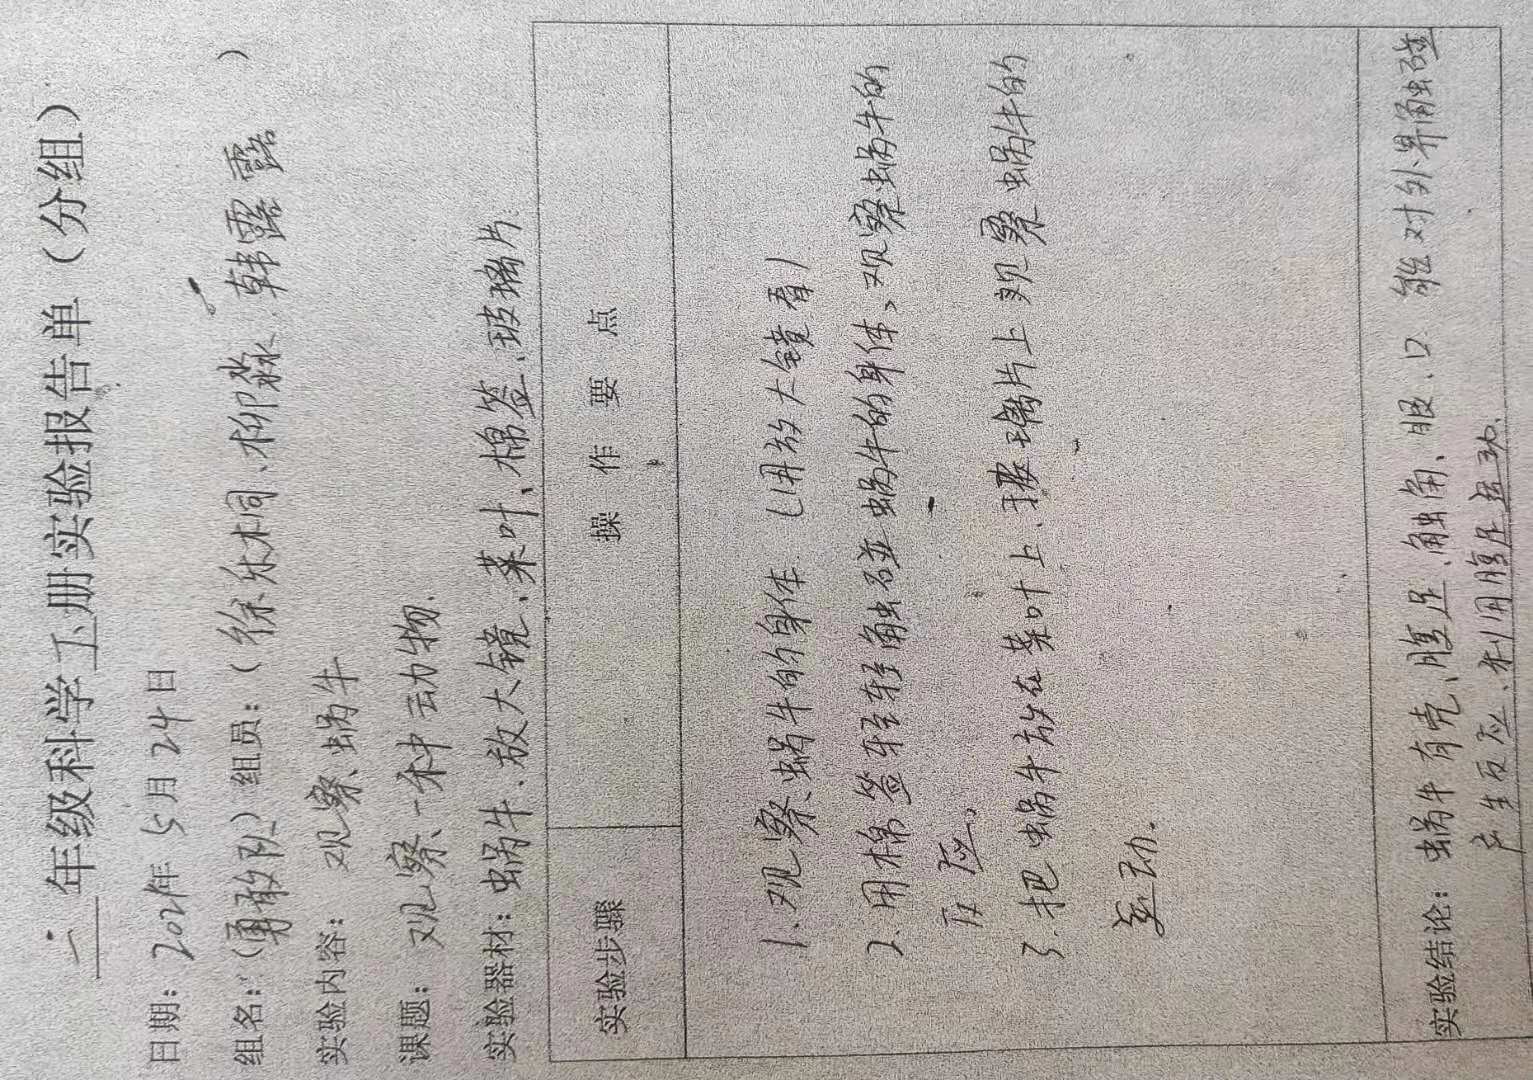 三年级科学下册实验报告单（分组）
日期：2021年5月24日
组名：（勇敢队）组员：（徐乐桐、柳淼、韩露露）
实验内容： 观察蜗牛
课题： 观察一种动物.
实验器材：蜗牛、放大镜、菜叶、棉签、玻璃片.
实验步骤 操作要点
1.观察蜗牛的身体（用放大镜看）
2.用棉签轻轻触碰蜗牛的身体、观察蜗牛的
反应。
3.把蜗牛放在菜叶上、玻璃片上观察蜗牛的
运动.
实验结论：蜗牛有壳、腹足、触角、眼、口. 能对外界触碰
产生反应、利用腹足运动.